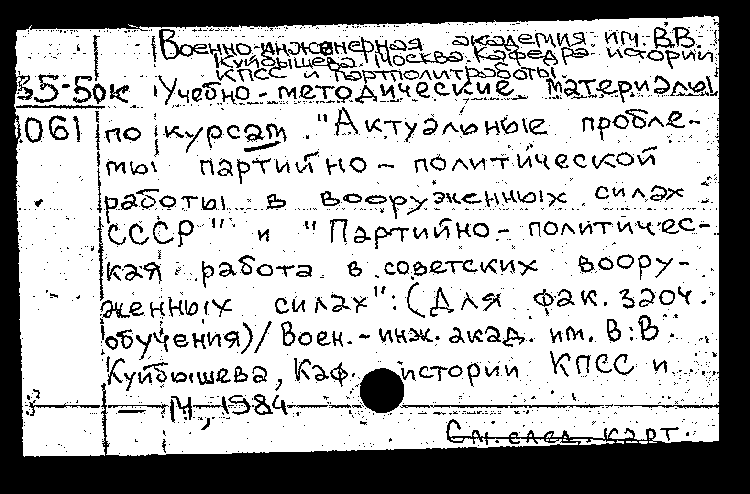 Военно-инженерная академия им. В.В.
Куйбышева. Москва. Кафедра истории
КПСС и партполитработы.
35-50к Учебно-методические материалы
1061 по курсам. "Актуальные пробле-
мы партийно-политической
работы в вооруженных силах
СССР" и "Партийно-политичес-
кая работа в советских воору-
женных силах": (Для фак. заоч.
обучения) / Воен.-инж. акад. им. В.В.
Куйбышева, Каф. истории КПСС и
— М, 1984
См. след. карт.